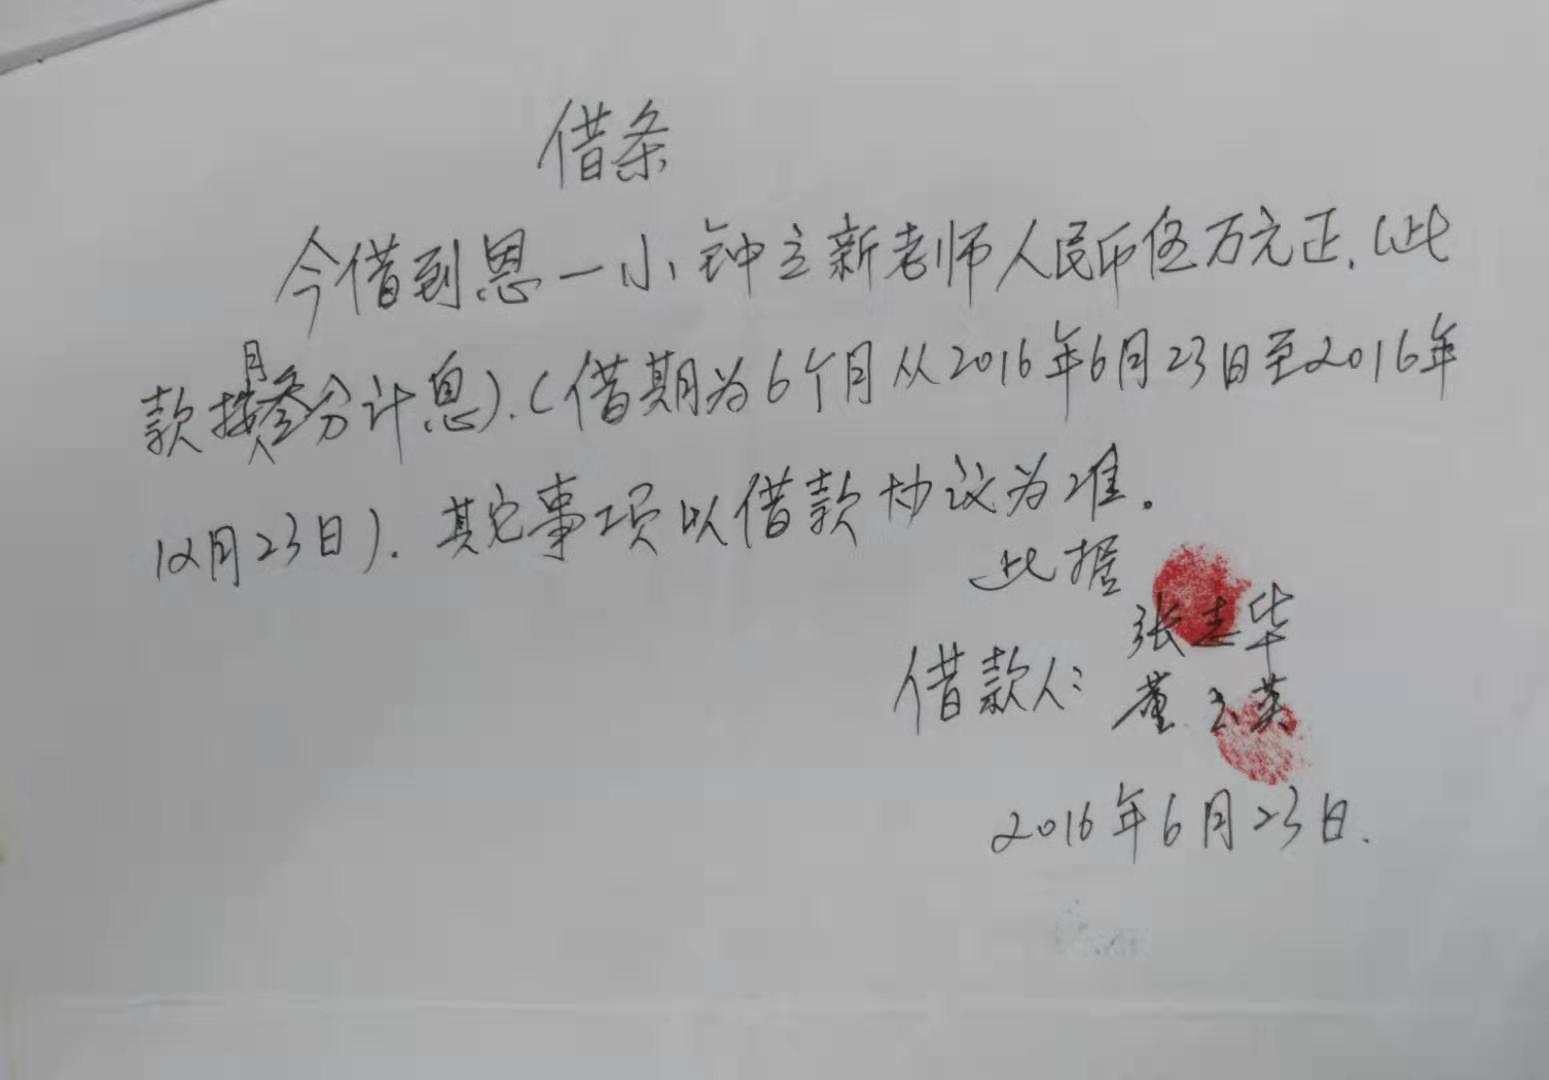 借条
今借到恩一小钟立新老师人民币伍万元正.(此
款按月叁分计息).(借期为6个月从2016年6月23日至2016年
12月23日).其它事项以借款协议为准。
此据
借款人:张志华
董玉英
2016年6月23日.